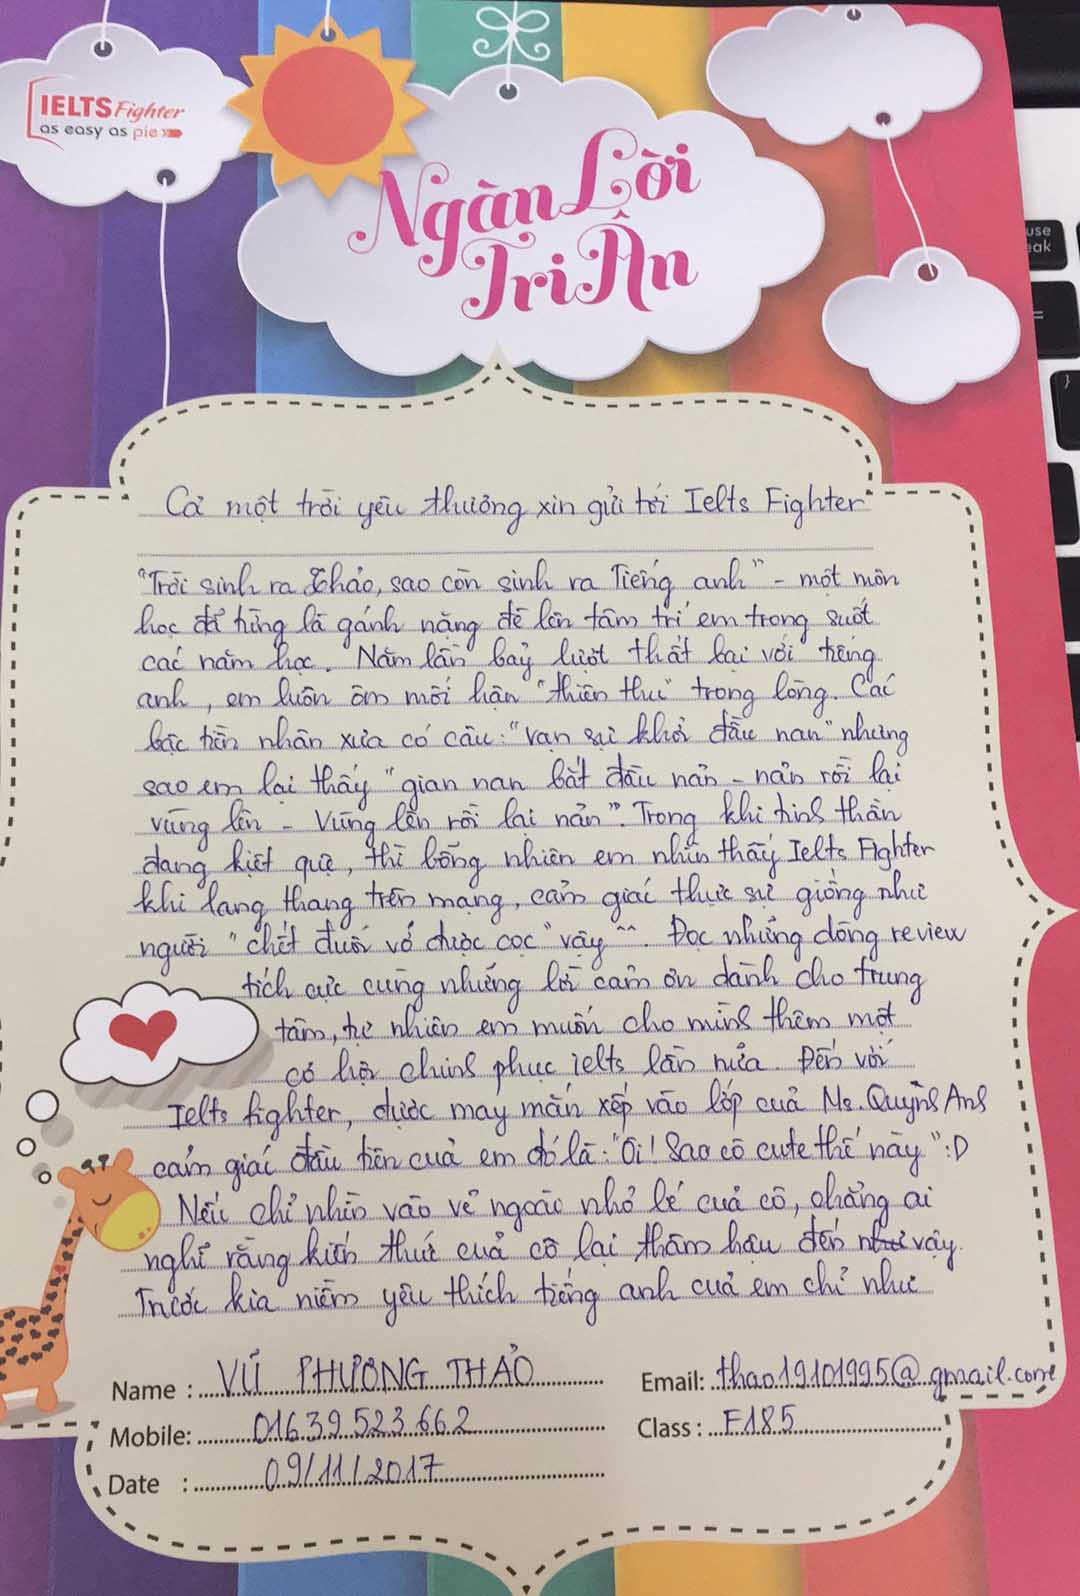 IELTS Fighter
as easy as pie
Ngàn Lời
Tri Ân
use
eak
=
}
Cả một trời yêu thương xin gửi tới Ielts Fighter
"Trời sinh ra Thảo, sao còn sinh ra Tiếng anh" - một môn
học đã từng là gánh nặng đè lên tâm trí em trong suốt
các năm học. Năm lần bảy lượt thất bại với tiếng
anh, em luôn ôm mối hận "thiên thu" trong lòng. Các
bậc tiền nhân xưa có câu: "vạn sự khởi đầu nan" nhưng
sao em lại thấy "gian nan bắt đầu nản - nản rồi lại
vùng lên - Vùng lên rồi lại nản". Trong khi tinh thần
đang kiệt quệ, thì bỗng nhiên em nhìn thấy Ielts Fighter
khi lang thang trên mạng, cảm giác thực sự giống như
người "chết đuối vớ được cọc" vậy ^^. Đọc những dòng review
tích cực cùng những lời cảm ơn dành cho trung
tâm, tự nhiên em muốn cho mình thêm một
cơ hội chinh phục ielts lần nữa. Đến với
Ielts fighter, được may mắn xếp vào lớp của Ms. Quỳnh Anh
cảm giác đầu tiên của em đó là: "Ôi! Sao cô cute thế này" :D
Nếu chỉ nhìn vào vẻ ngoài nhỏ bé của cô, chẳng ai
nghĩ rằng kiến thức của cô lại thâm hậu đến như vậy.
Trước kia niềm yêu thích tiếng anh của em chỉ như
Name : VŨ PHƯƠNG THẢO
Email: thao19101995@gmail.com
Mobile: 01639523662
Class : F185
Date : 09/11/2017